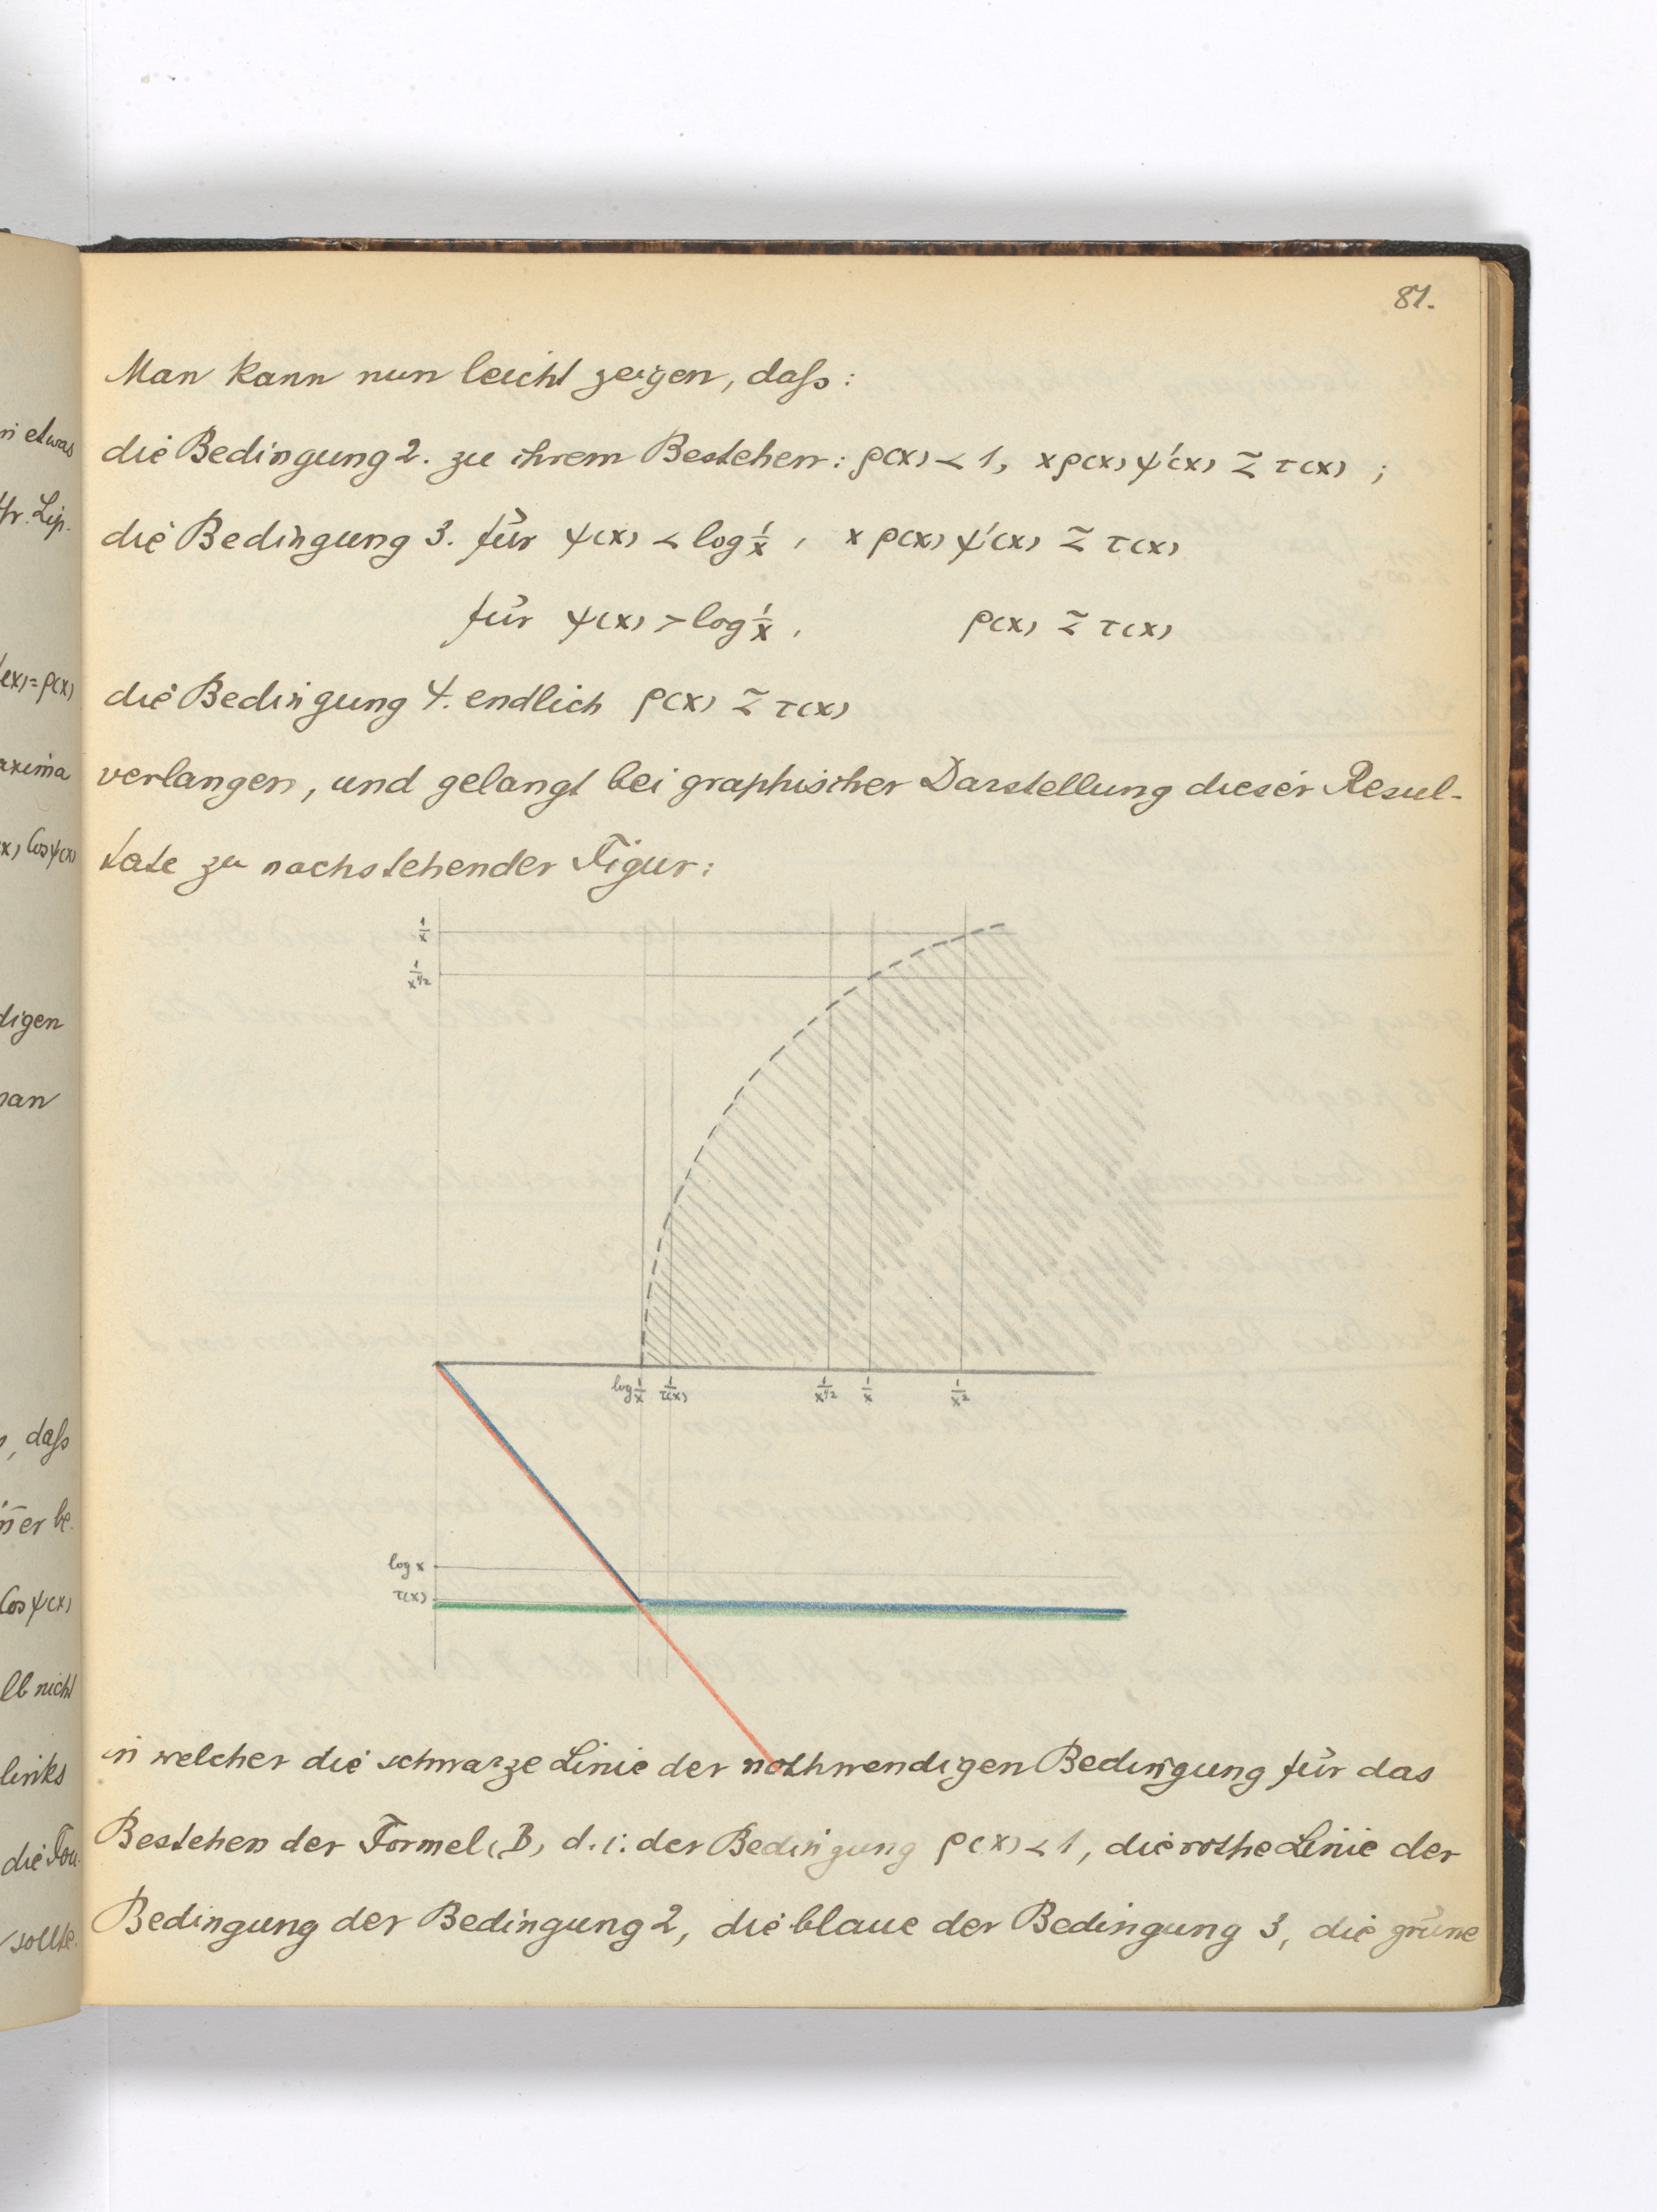 81.
Man kann nun leicht zeigen, daſs:
die Bedingung 2. zu ihrem Bestehen: ρ(x) < 1, xρ(x)ψ'(x) ≾ τ(x) ;
die Bedingung 3. für ψ(x) < log 1/x , xρ(x)ψ'(x) ≾ τ(x)
für ψ(x) > log 1/x , ρ(x) ≾ τ(x)
die Bedingung 4. endlich ρ(x) ≾ τ(x)
verlangen, und gelangt bei graphischer Darstellung dieser Resul-
tate zu nachstehender Figur:
1/x
1/x^1/2
log 1/x 1/τ(x) 1/x^1/2 1/x 1/x^2
log x
τ(x)
in welcher die schwarze Linie der nothwendigen Bedingung für das
Bestehen der Formel (B) d. i: der Bedingung ρ(x) < 1, die rothe Linie der
Bedingung der Bedingung 2, die blaue der Bedingung 3, die grüne
etwas
Lip.
=ρ(x)
axima
Cosψ(x)
digen
man
, daſs
er be.
Cosψ(x)
lb nicht
links
die
sollte.